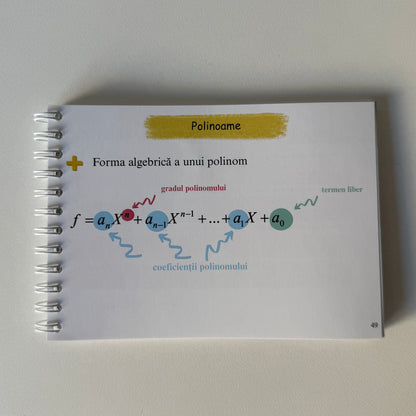 Polinoame
Forma algebrică a unui polinom
gradul polinomului
termen liber
f = aₙXⁿ + aₙ₋₁Xⁿ⁻¹ + ... + a₁X + a₀
coeficienții polinomului
49